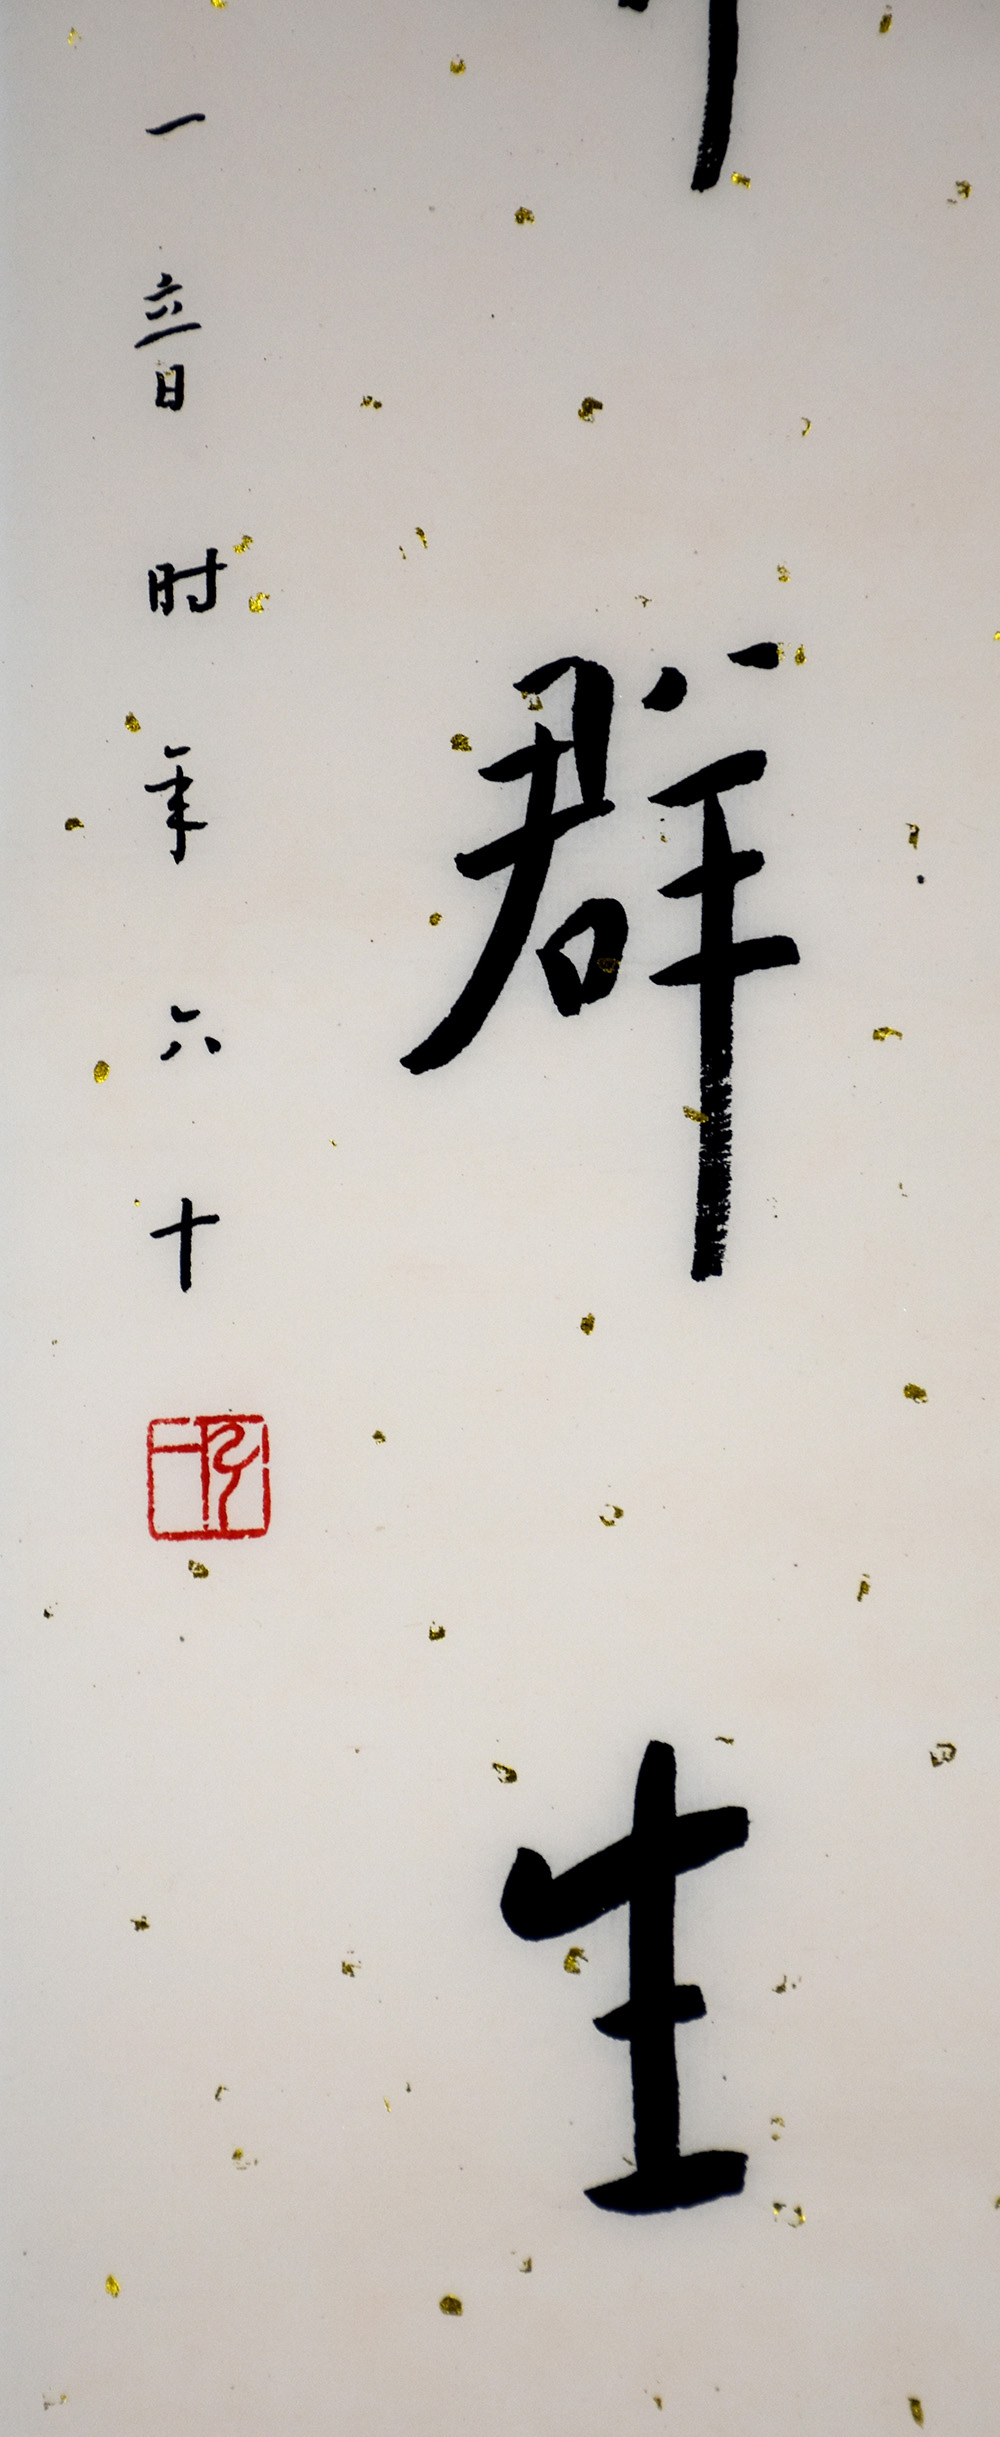 群生
一音时年六十